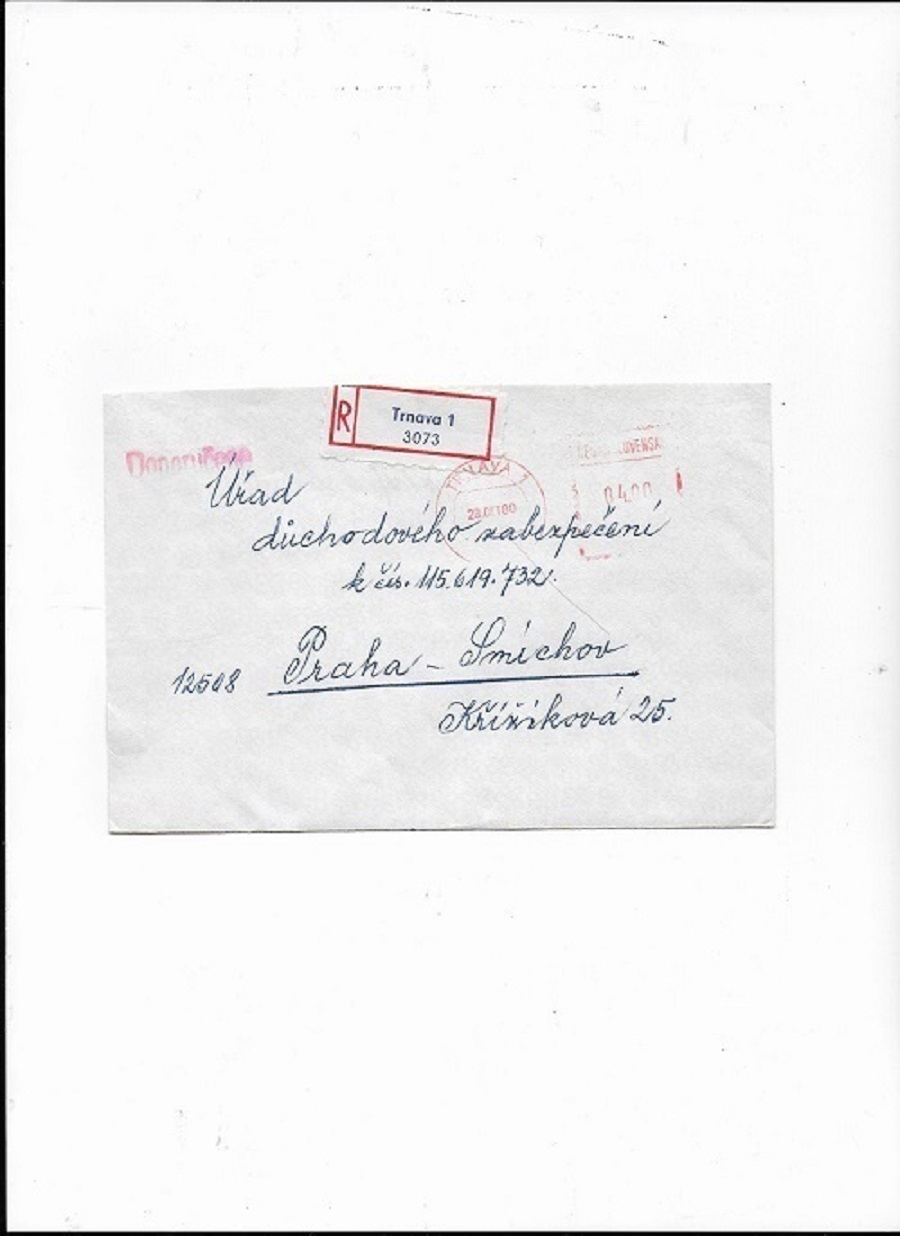 R
Trnava 1
3073
Doporučene
TRNAVA 1
04.00
Úřad
důchodového zabezpečení
k čís. 115.619.732.
12508 Praha - Smíchov
Křížiková 25.